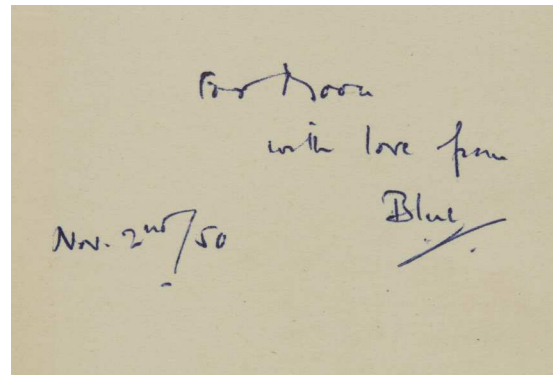 For
with love from
Blue
Nov. 2nd/50